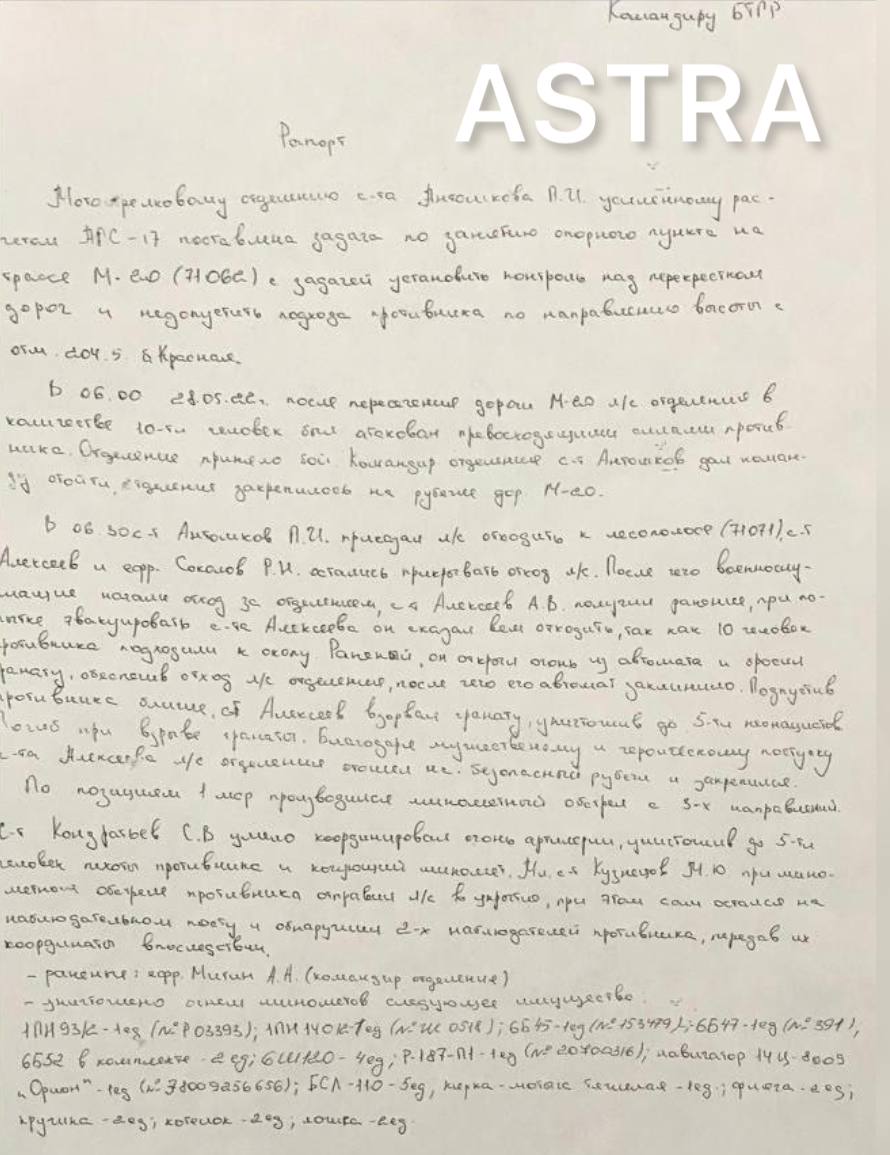 Командиру БТГР
ASTRA
Рапорт
Мотострелковому отделению с-та Антошкова П.И. усиленному рас-
четом АГС-17 поставлена задача по занятию опорного пункта на
трассе М-20 (71062) с задачей установить контроль над перекрестком
дорог и недопустить подхода противника по направлению высоты с
отм. 204.5 б. Красная.
В 06.00 28.05.22г. после пересечения дороги М-20 л/с отделения в
количестве 10-ти человек был атакован превосходящими силами против-
ника. Отделение приняло бой. Командир отделения с-т Антошков дал коман-
ду отойти, отделения закрепилось на рубеже дор. М-20.
В 06.30 с-т Антошков П.И. приказал л/с отходить к лесополосе (71071), с-т
Алексеев и ефр. Соколов Р.Н. остались прикрывать отход л/с. После чего военнослу-
жащие начали отход за отделением, с-т Алексеев А.В. получил ранение, при по-
пытке эвакуировать с-та Алексеева он сказал всем отходить, так как 10 человек
противника подходили к окопу. Раненый, он открыл огонь из автомата и бросил
гранату, обеспечив отход л/с отделения, после чего его автомат заклинило. Подпустив
противника ближе, с-т Алексеев взорвал гранату, уничтожив до 5-ти неонацистов.
Погиб при взрыве гранаты. Благодаря мужественному и героическому поступку
с-та Алексеева л/с отделения отошел на безопасный рубеж и закрепился.
По позициям 1 мср производился минометный обстрел с 3-х направлений.
С-т Кондратьев С.В умело координировал огонь артилерии, уничтожив до 5-ти
человек пехоты противника и кочующий миномет. Мл. с-т Кузнецов М.Ю. при мино-
метном обстреле противника отправил л/с в укрытие, при этом сам остался на
наблюдательном посту и обнаружил 2-х наблюдателей противника, передав их
координаты впоследствии.
- раненые: ефр. Митин А.А. (командир отделения)
- уничтожено огнем минометов следующее имущество:
1ПН93/2 - 1ед (№ Р03393); 1ПН140К-1ед (№ Ш 0518); 6Б45-1ед (№ 153479); 6Б47-1ед (№ 391),
6Б52 в комплекте - 2 ед; 6Ш120 - 4ед; Р-187-П1 - 1ед (№ 20700316); навигатор 14Ц-8009
"Орион" - 1ед (№ 78009256656); БСЛ-110 - 5ед, кирка-мотыга тяжелая - 1ед.; фляга - 2ед;
кружка - 2ед; котелок - 2ед; ложка - 2ед.